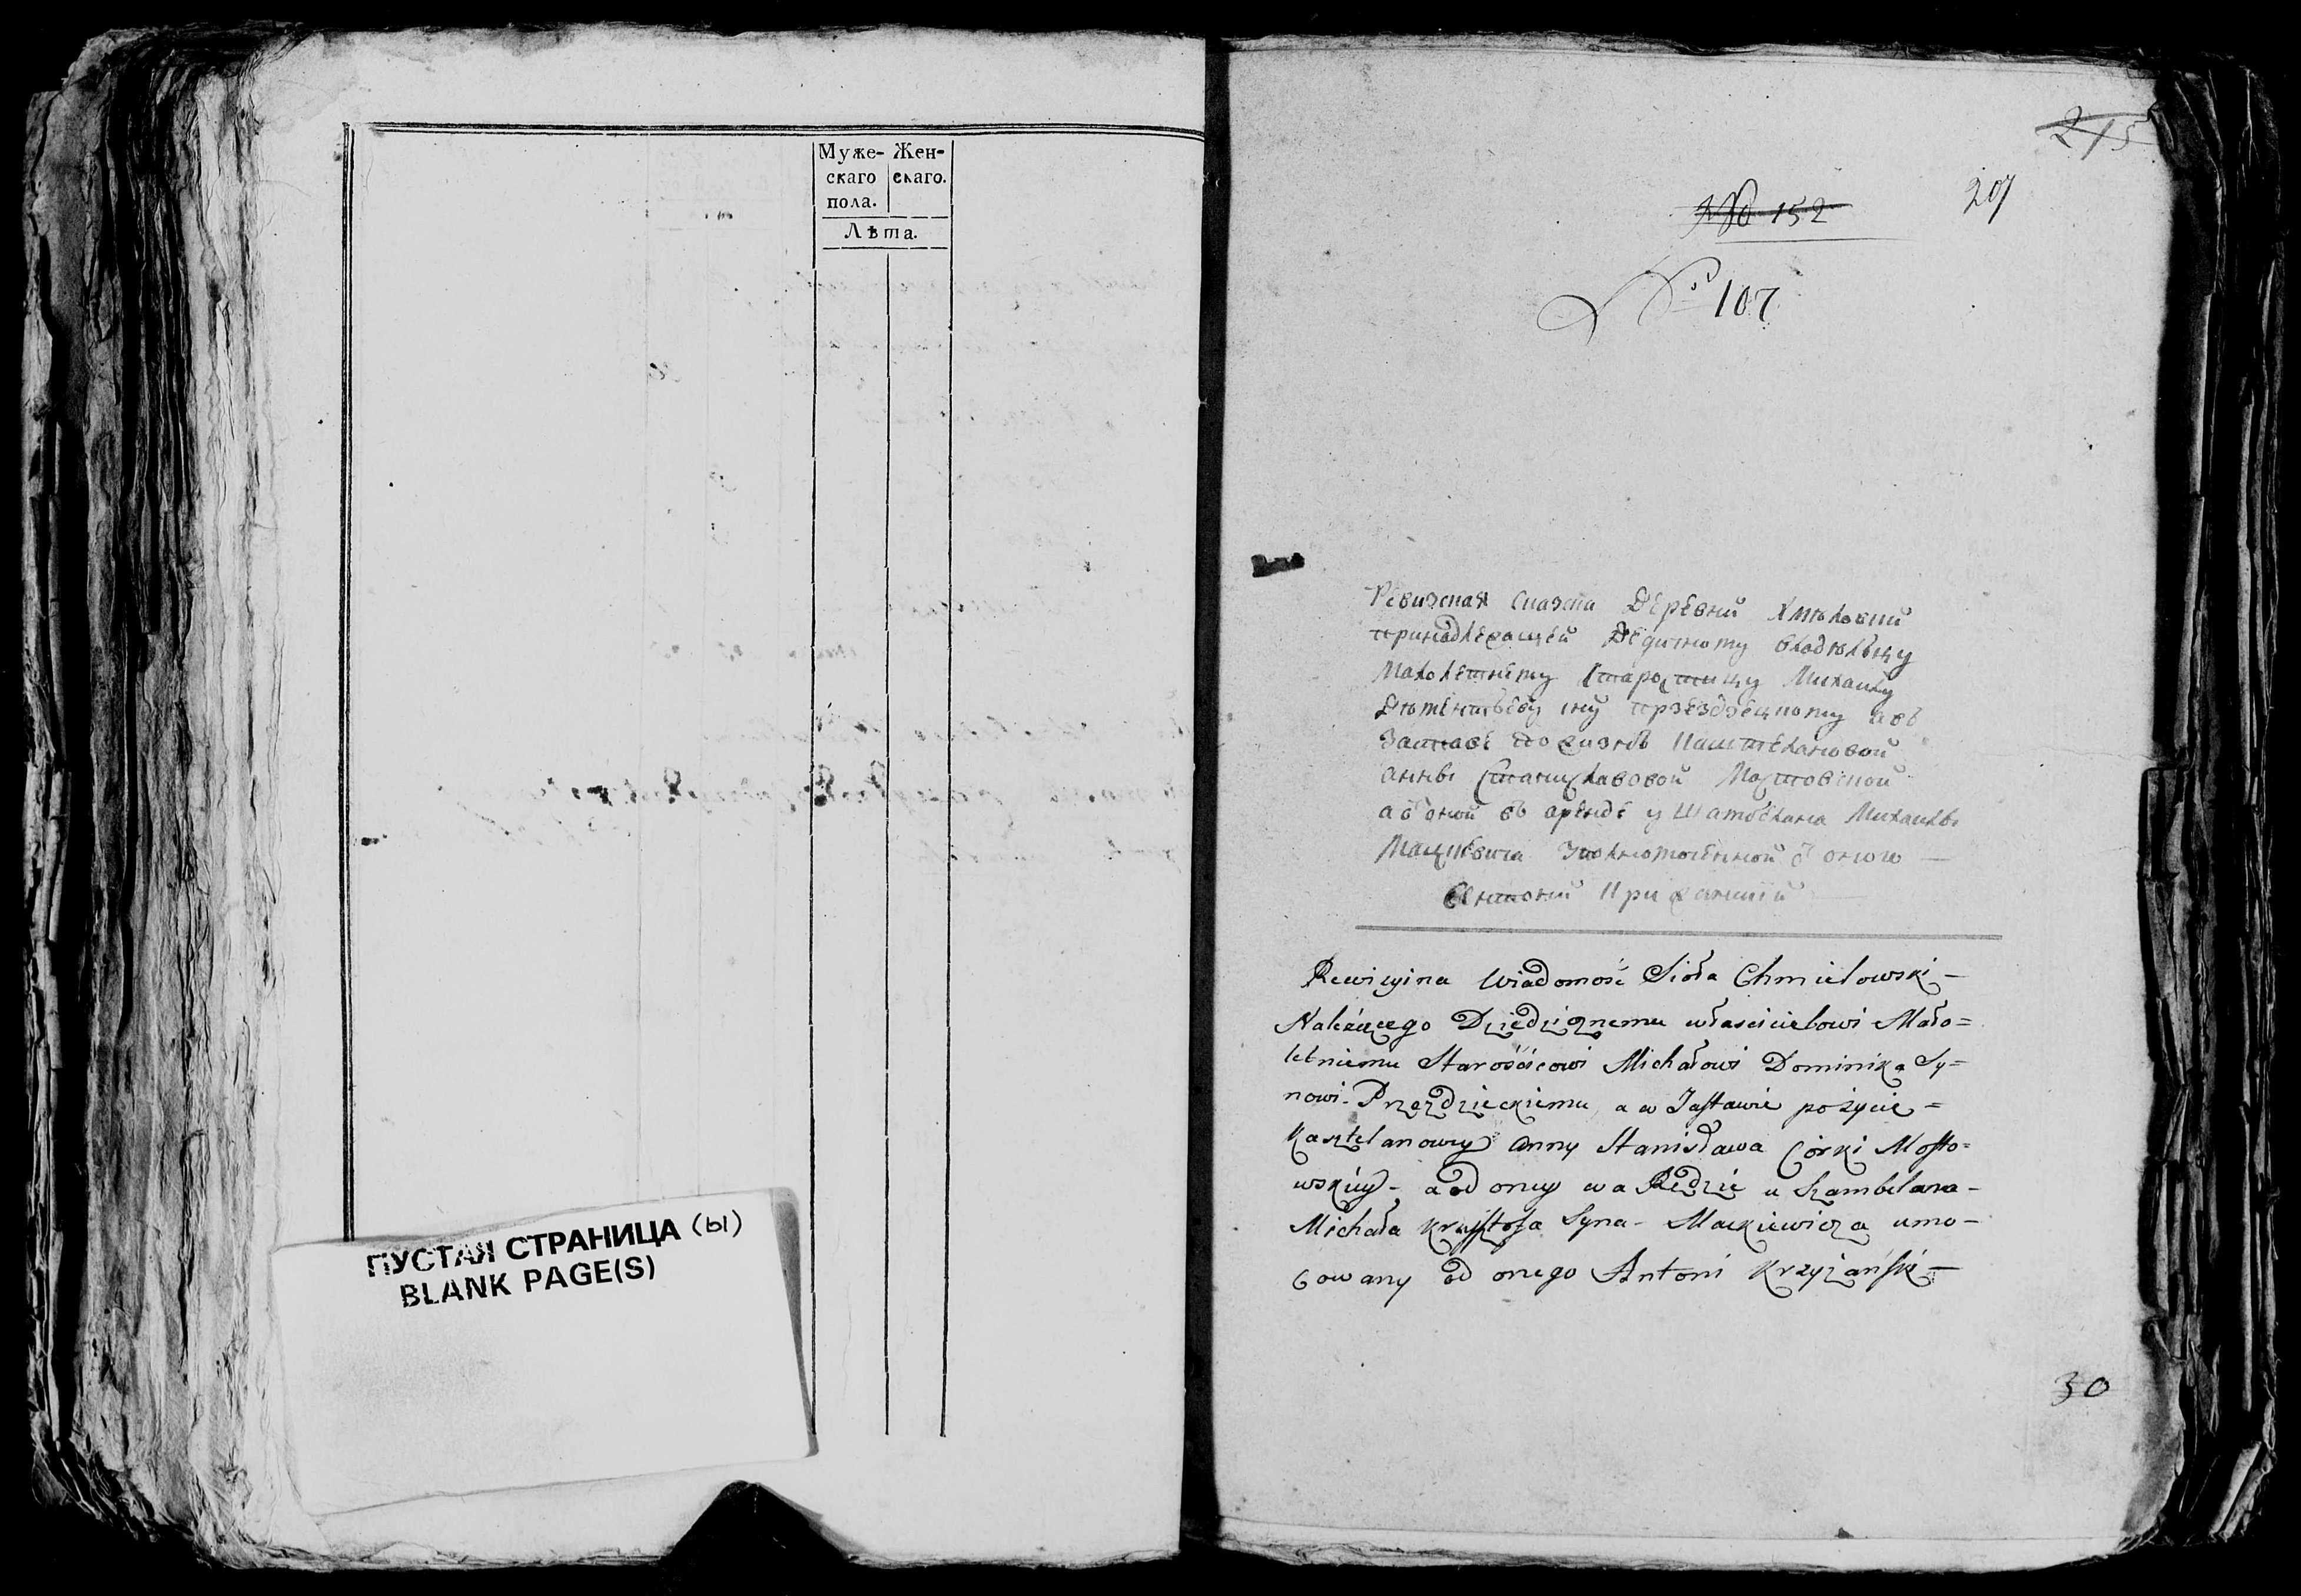 Муже- Жен-
скаго скаго.
пола.
Лѣта.
ПУСТАЯ СТРАНИЦА (ы)
BLANK PAGE(S)
215
207
No 152
No 107
Ревизская сказка Деревни Хмѣловки
принадлежащей Дедичному владѣльцу
Малолетнему Старостицу Михаилу
заставе по жизнь Каштеляновой
Анны Станиславовой Мостовской
а ѿ оной въ аренде у Шамбеляна Михаила
Мацкевича ѿ оного —
Антоний Крижанский —
Rewizyina Wiadomość Sioła Chmielowski —
Należącego Dziedzicznemu właścicielowi Mało=
letniemu Starościcowi Michałowi Dominika Sy=
nowi Przezdzieckiemu, a w Zastawie po życie =
Kasztelanowey Anny Stanisława Córki Mosto=
wskiey - a od oney w aRędzie u Szambelana -
Michała Krzysztofa Syna - Mackiewicza umo-
cowany od onego Antoni Krzyżański —
30